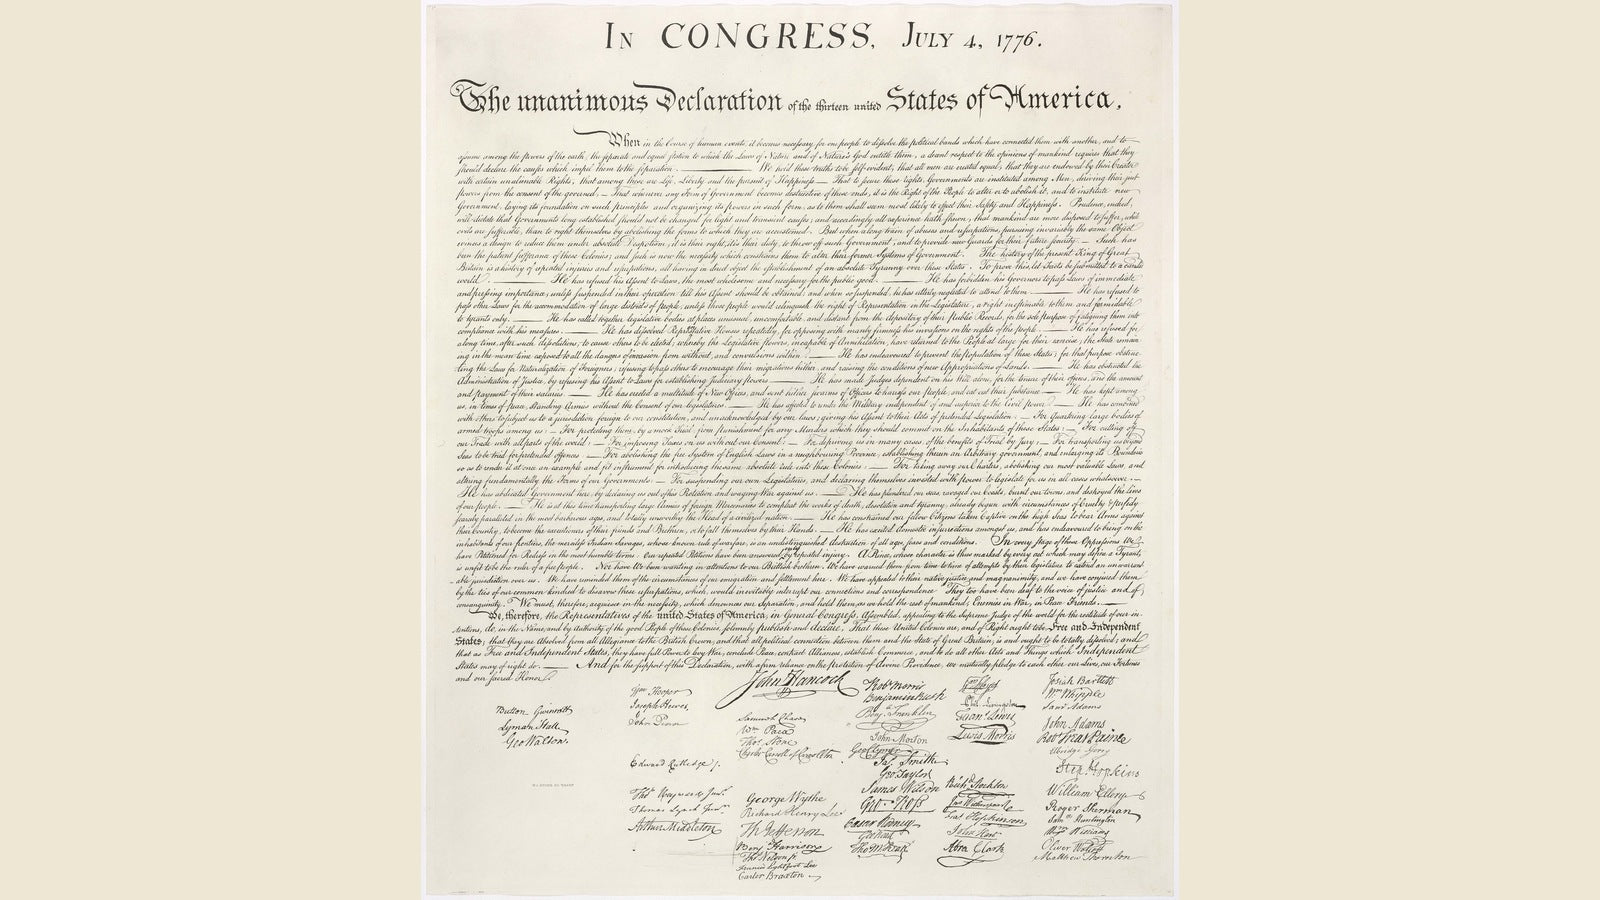 In CONGRESS, July 4, 1776.
The unanimous Declaration of the thirteen united States of America,
When in the Course of human events, it becomes necessary for one people to dissolve the political bands which have connected them with another, and to
assume among the powers of the earth, the separate and equal station to which the Laws of Nature and of Nature's God entitle them, a decent respect to the opinions of mankind requires that they
should declare the causes which impel them to the separation. We hold these truths to be self-evident, that all men are created equal, that they are endowed by their Creator
with certain unalienable Rights, that among these are Life, Liberty and the pursuit of Happiness. — That to secure these rights, Governments are instituted among Men, deriving their just
powers from the consent of the governed, — That whenever any Form of Government becomes destructive of these ends, it is the Right of the People to alter or to abolish it, and to institute new
Government, laying its foundation on such principles and organizing its powers in such form, as to them shall seem most likely to effect their Safety and Happiness. Prudence, indeed,
will dictate that Governments long established should not be changed for light and transient causes; and accordingly all experience hath shewn, that mankind are more disposed to suffer, while
evils are sufferable, than to right themselves by abolishing the forms to which they are accustomed. But when a long train of abuses and usurpations, pursuing invariably the same Object
evinces a design to reduce them under absolute Despotism, it is their right, it is their duty, to throw off such Government, and to provide new Guards for their future security. — Such has
been the patient sufferance of these Colonies; and such is now the necessity which constrains them to alter their former Systems of Government. The history of the present King of Great
Britain is a history of repeated injuries and usurpations, all having in direct object the establishment of an absolute Tyranny over these States. To prove this, let Facts be submitted to a candid
world. He has refused his Assent to Laws, the most wholesome and necessary for the public good. He has forbidden his Governors to pass Laws of immediate
and pressing importance, unless suspended in their operation till his Assent should be obtained; and when so suspended, he has utterly neglected to attend to them. He has refused to
pass other Laws for the accommodation of large districts of people, unless those people would relinquish the right of Representation in the Legislature, a right inestimable to them and formidable
to tyrants only. He has called together legislative bodies at places unusual, uncomfortable, and distant from the depository of their public Records, for the sole purpose of fatiguing them into
compliance with his measures. He has dissolved Representative Houses repeatedly, for opposing with manly firmness his invasions on the rights of the people. He has refused for
a long time, after such dissolutions, to cause others to be elected; whereby the Legislative powers, incapable of Annihilation, have returned to the People at large for their exercise; the State remain
ing in the mean time exposed to all the dangers of invasion from without, and convulsions within. He has endeavoured to prevent the population of these States; for that purpose obstruc
ting the Laws for Naturalization of Foreigners; refusing to pass others to encourage their migrations hither, and raising the conditions of new Appropriations of Lands. He has obstructed the
Administration of Justice, by refusing his Assent to Laws for establishing Judiciary powers. He has made Judges dependent on his Will alone, for the tenure of their offices, and the amount
and payment of their salaries. He has erected a multitude of New Offices, and sent hither swarms of Officers to harrass our people, and eat out their substance. He has kept among
us, in times of peace, Standing Armies without the Consent of our legislatures. He has affected to render the Military independent of and superior to the Civil power. He has combined
with others to subject us to a jurisdiction foreign to our constitution, and unacknowledged by our laws; giving his Assent to their Acts of pretended Legislation: — For Quartering large bodies of
armed troops among us: — For protecting them, by a mock Trial, from punishment for any Murders which they should commit on the Inhabitants of these States: — For cutting off
our Trade with all parts of the world: — For imposing Taxes on us without our Consent: — For depriving us in many cases, of the benefits of Trial by Jury: — For transporting us beyond
Seas to be tried for pretended offences — For abolishing the free System of English Laws in a neighbouring Province, establishing therein an Arbitrary government, and enlarging its Boundaries
so as to render it at once an example and fit instrument for introducing the same absolute rule into these Colonies: — For taking away our Charters, abolishing our most valuable Laws, and
altering fundamentally the Forms of our Governments: — For suspending our own Legislatures, and declaring themselves invested with power to legislate for us in all cases whatsoever. —
He has abdicated Government here, by declaring us out of his Protection and waging War against us. He has plundered our seas, ravaged our Coasts, burnt our towns, and destroyed the lives
of our people. He is at this time transporting large Armies of foreign Mercenaries to compleat the works of death, desolation and tyranny, already begun with circumstances of Cruelty & perfidy
scarcely paralleled in the most barbarous ages, and totally unworthy the Head of a civilized nation. He has constrained our fellow Citizens taken Captive on the high Seas to bear Arms against
their Country, to become the executioners of their friends and Brethren, or to fall themselves by their Hands. He has excited domestic insurrections amongst us, and has endeavoured to bring on the
inhabitants of our frontiers, the merciless Indian Savages, whose known rule of warfare, is an undistinguished destruction of all ages, sexes and conditions. In every stage of these Oppressions We
have Petitioned for Redress in the most humble terms: Our repeated Petitions have been answered only by repeated injury. A Prince, whose character is thus marked by every act which may define a Tyrant,
is unfit to be the ruler of a free people. Nor have We been wanting in attentions to our Brittish brethren. We have warned them from time to time of attempts by their legislature to extend an unwarrant
able jurisdiction over us. We have reminded them of the circumstances of our emigration and settlement here. We have appealed to their native justice and magnanimity, and we have conjured them
by the ties of our common kindred to disavow these usurpations, which, would inevitably interrupt our connections and correspondence. They too have been deaf to the voice of justice and of
consanguinity. We must, therefore, acquiesce in the necessity, which denounces our Separation, and hold them, as we hold the rest of mankind, Enemies in War, in Peace Friends.
We, therefore, the Representatives of the united States of America, in General Congress, Assembled, appealing to the Supreme Judge of the world for the rectitude of our in-
tentions, do, in the Name, and by Authority of the good People of these Colonies, solemnly publish and declare, That these United Colonies are, and of Right ought to be Free and Independent
States; that they are Absolved from all Allegiance to the British Crown, and that all political connection between them and the State of Great Britain, is and ought to be totally dissolved; and
that as Free and Independent States, they have full Power to levy War, conclude Peace, contract Alliances, establish Commerce, and to do all other Acts and Things which Independent
States may of right do. And for the support of this Declaration, with a firm reliance on the protection of divine Providence, we mutually pledge to each other our Lives, our Fortunes
and our sacred Honor.
Button Gwinnett
Lyman Hall
Geo Walton.
Wm Hooper
Joseph Hewes,
John Penn
Edward Rutledge /.
Thos Heyward Junr.
Thomas Lynch Junr.
Arthur Middleton
John Hancock
Samuel Chase
Wm Paca
Thos Stone
Charles Carroll of Carrollton
George Wythe
Richard Henry Lee
Th Jefferson
Benj Harrison
Thos Nelson jr.
Francis Lightfoot Lee
Carter Braxton
Robt Morris
Benjamin Rush
Benj. Franklin
John Morton
Geo Clymer
Jas. Smith
Geo. Taylor
James Wilson
Geo. Ross
Caesar Rodney
Geo Read
Tho M:Kean
Wm Floyd
Phil. Livingston
Frans. Lewis
Lewis Morris
Richd Stockton
Jno Witherspoon
Fras. Hopkinson
John Hart
Abra Clark
Josiah Bartlett
Wm Whipple
Saml Adams
John Adams
Robt Treat Paine
Elbridge Gerry
Step. Hopkins
William Ellery
Roger Sherman
Saml Huntington
Wm Williams
Oliver Wolcott
Matthew Thornton